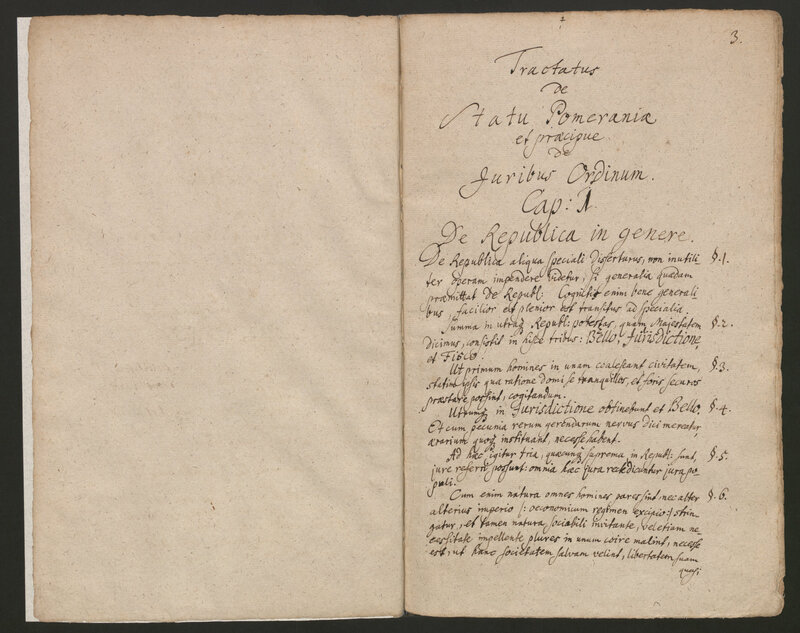 3.
Tractatus
de
Statu Pomeraniæ
et præcipue
de
Juribus Ordinum.
Cap: 1.
De Republica in genere.
De Republica aliqua speciali disserturus, non inutili §. 1.
ter operam impendere videtur, si generalia quædam
præmittat De Republ: Cognitis enim bene generali
bus, facilior est plenior est transitus ad specialia.
Summa in utraq Republ: potestas, quam Majestatem §. 2.
dicimus, consistit in hisce tribus: Bello, Jurisdictione,
et Fisco.
Ut primum homines in unam coalescant civitatem, §. 3.
statim ipsis qua ratione domi se tranquillos, et foris securos
præstare possint, cogitandum.
Utrumq in Jurisdictione obtinetur et Bello, §. 4.
Et cum pecunia rerum gerendarum nervus dici mereatur,
ærarium quoq instituant, necesse habent.
Ad hæc igitur tria, quæcunq suprema in Republ: sunt, §. 5.
jure referri possunt: omnia hæc jura recte dicuntur jura po
puli.
Cum enim natura omnes homines pares sint, nec alter §. 6.
alterius imperio /: oeconomicum regimen excipio :/ strin
gatur, et tamen natura sociabili invitante, vel etiam ne
cessitate impellente plures in unum coire malint, necesse
est, ut hanc societatem salvam velint, libertatem suam
quasi